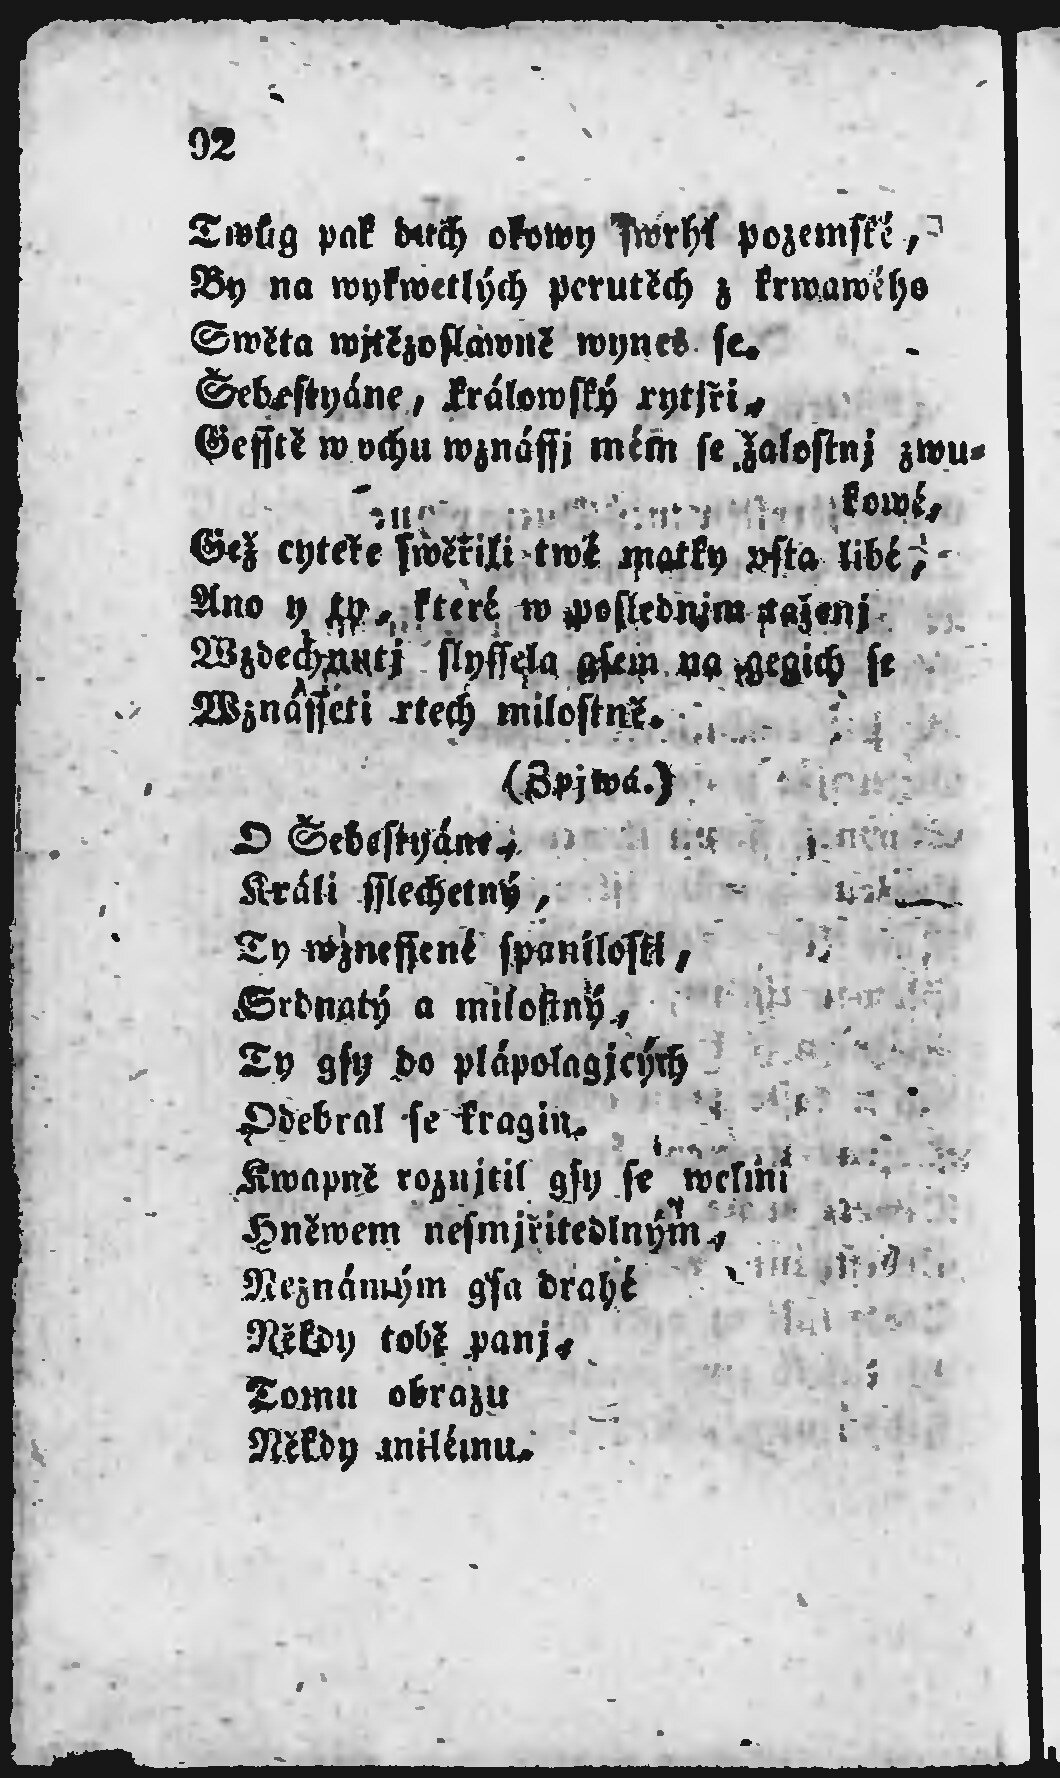 92
Twůg pak duch okowy swrhl pozemské,
By na wykwetlých perutěch z krwawého
Swěta wjtězoslawně wynes se.
Šebestyáne, králowský rytjři,
Gesstě w vchu wznássj mém se žalostnj zwu-
kowé,
Gež cyteře swěřili twé matky vsta libé,
Ano y ty, které w poslednjm taženj
Wzdechnutj slyssela gsem na gegich se
Wznásseti rtech milostně.
(Zpjwá.)
O Šebestyáne,
Králi sslechetný,
Ty wznessené spanilosti,
Srdnatý a milostný,
Ty gsy do plápolagjcých
Odebral se kragin.
Kwapně roznjtil gsy se welmi
Hněwem nesmjřitedlným,
Neznámým gsa drahé
Někdy tobě panj,
Tomu obrazu
Někdy milému.